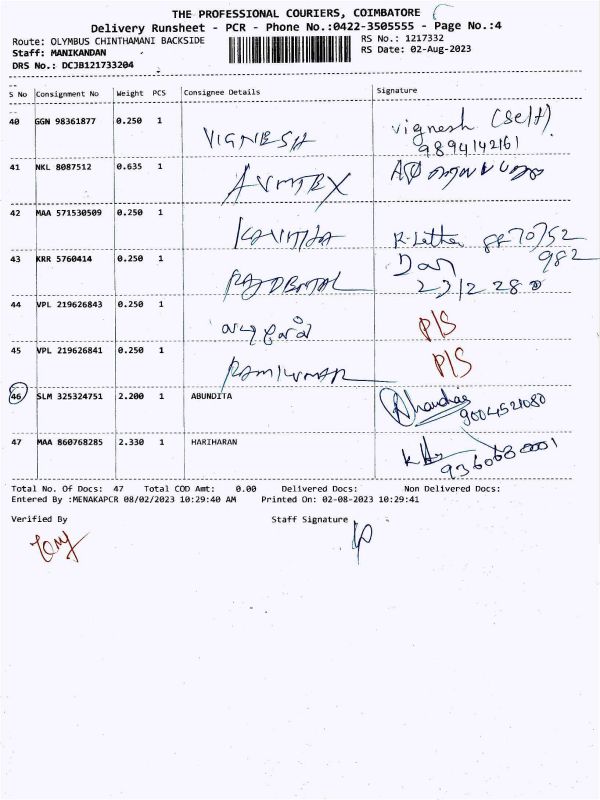 THE PROFESSIONAL COURIERS, COIMBATORE
Delivery Runsheet - PCR - Phone No.:0422-3505555 - Page No.:4
Route: OLYMBUS CHINTHAMANI BACKSIDE
RS No.: 1217332
Staff: MANIKANDAN
RS Date: 02-Aug-2023
DRS No.: DCJB121733204
S No Consignment No Weight PCS Consignee Details Signature
40 GGN 98361877 0.250 1 VIGNESH vignesh (self)
9894142161
41 NKL 8087512 0.635 1 AVMTEX
42 MAA 571530509 0.250 1 KAVITHA
43 KRR 5760414 0.250 1
44 VPL 219626843 0.250 1 P/S
45 VPL 219626841 0.250 1 RAMKUMAR P/S
46 SLM 325324751 2.200 1 ABUNDITA
9004521080
47 MAA 860768285 2.330 1 HARIHARAN
Total No. Of Docs: 47 Total COD Amt: 0.00 Delivered Docs: Non Delivered Docs:
Entered By :MENAKAPCR 08/02/2023 10:29:40 AM Printed On: 02-08-2023 10:29:41
Verified By Staff Signature